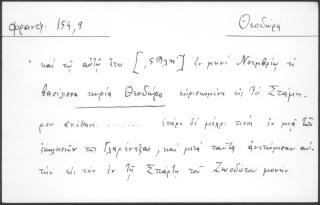 φραντζ. 154,9
Θεοδώρα
"καὶ τῷ αὐτῷ ἔτει [͵ςϡλη'] ἐν μηνὶ Νοεμβρίῳ ἡ
βασίλισσα κυρία Θεοδώρα εὑρισκομένη εἰς τὸ Στάμη-
ρον ἀπέθανε......... ἐτάφη δὲ μέχρι τινὸς ἐν μιᾷ τῶν
ἐκκλησιῶν τῆς Γλαρέντζας, καὶ μετὰ ταῦτα ἀνεκόμισαν αὐ-
τὴν εἰς τὴν ἐν τῇ Σπάρτῃ τοῦ Ζωοδότου μονήν.